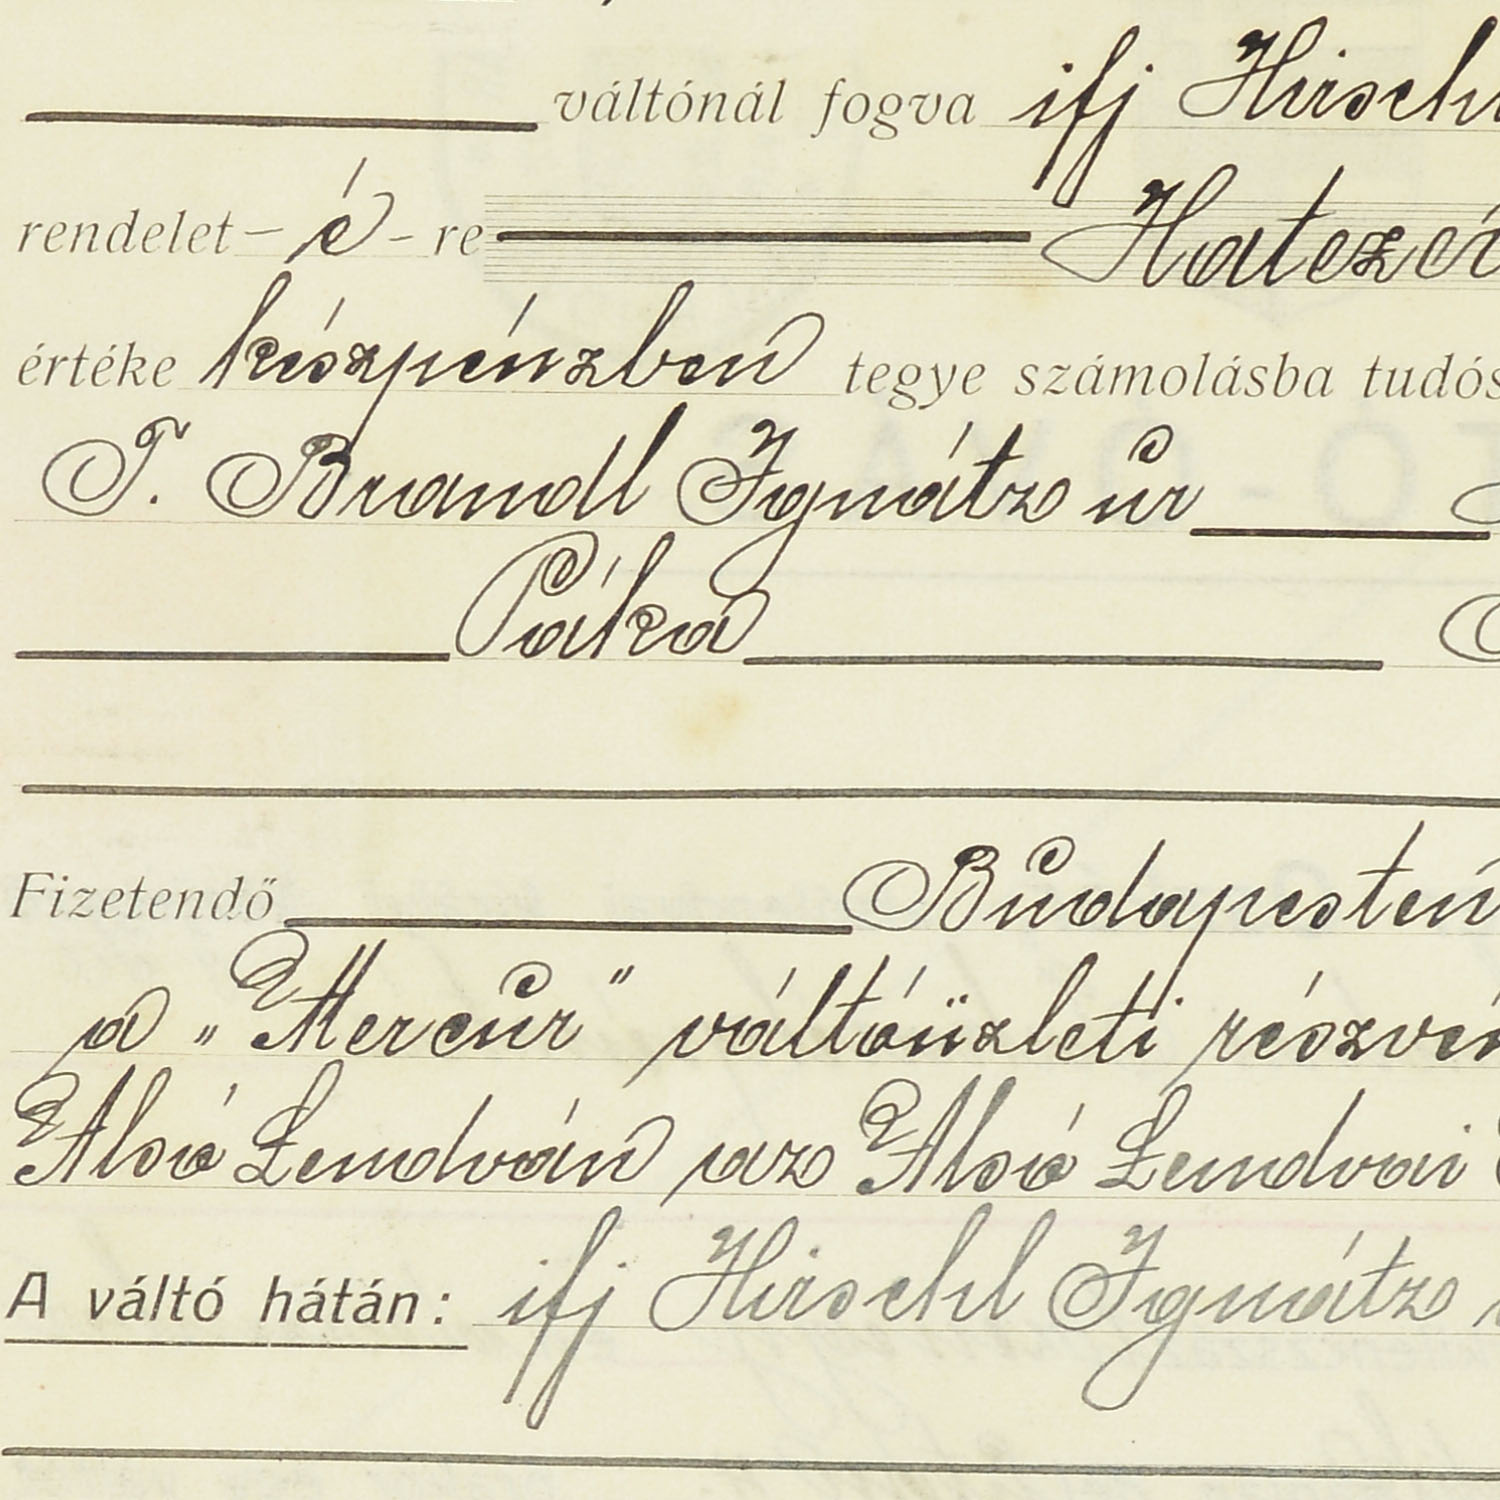 váltónál fogva ifj Hirschl
rendelet- é -re Hatezer
értéke készpénzben tegye számolásba tudós
T. Brandl Ignátz úr
Páka
Fizetendő Budapesten
a „Mercur" váltóüzleti részvén
Alsó Lendván az Alsó Lendvai
A váltó hátán: ifj Hirschl Ignátz